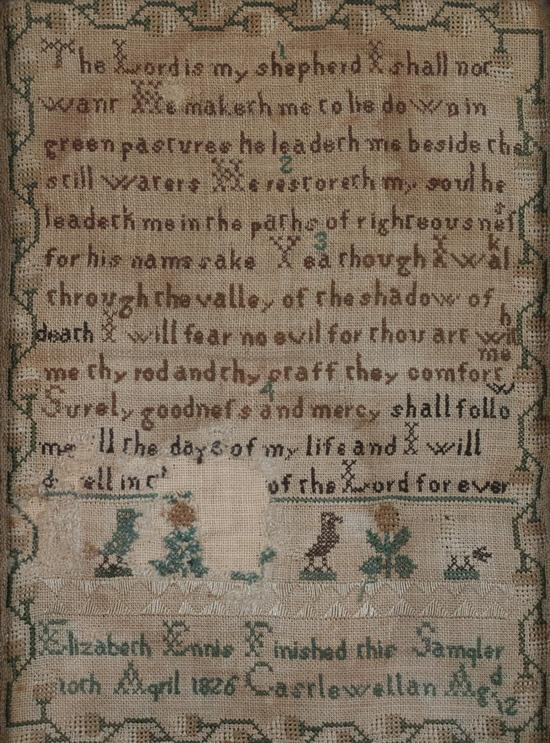 1
The Lord is my shepherd I shall not
want He maketh me to lie down in
green pastures he leadeth me beside the
2
still waters He restoreth my soul he
leadeth me in the paths of righteousneſs
3
for his names sake Yea though I walk
through the valley of the shadow of
death I will fear no evil for thou art with
me thy rod and thy staff they comfort me
4
Surely goodneſs and mercy shall follow
me ll the days of my life and I will
d ell in of the Lord for ever
Elizabeth Ennis Finished this Sampler
10th April 1826 Castlewellan Agd 12